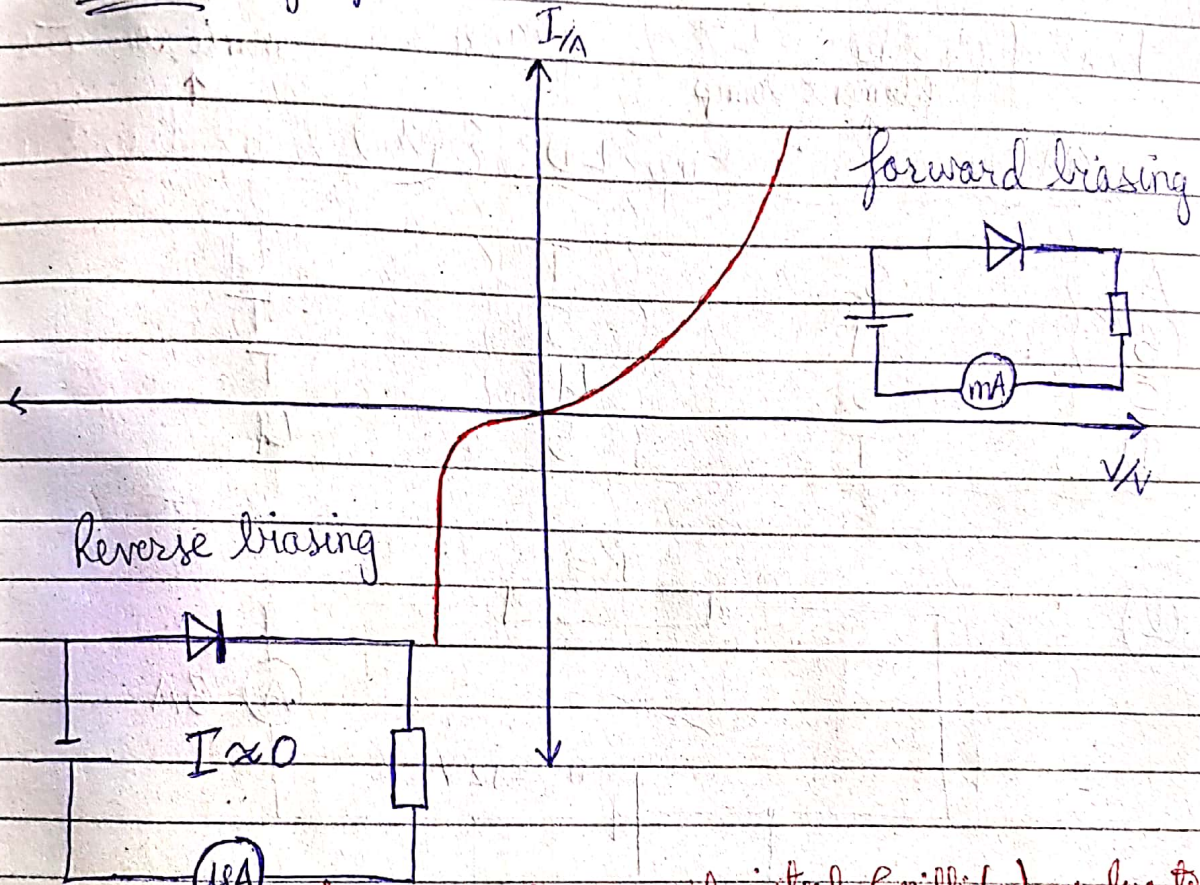 I/A
forward biasing
mA
V/V
Reverse biasing
I≈0
μA